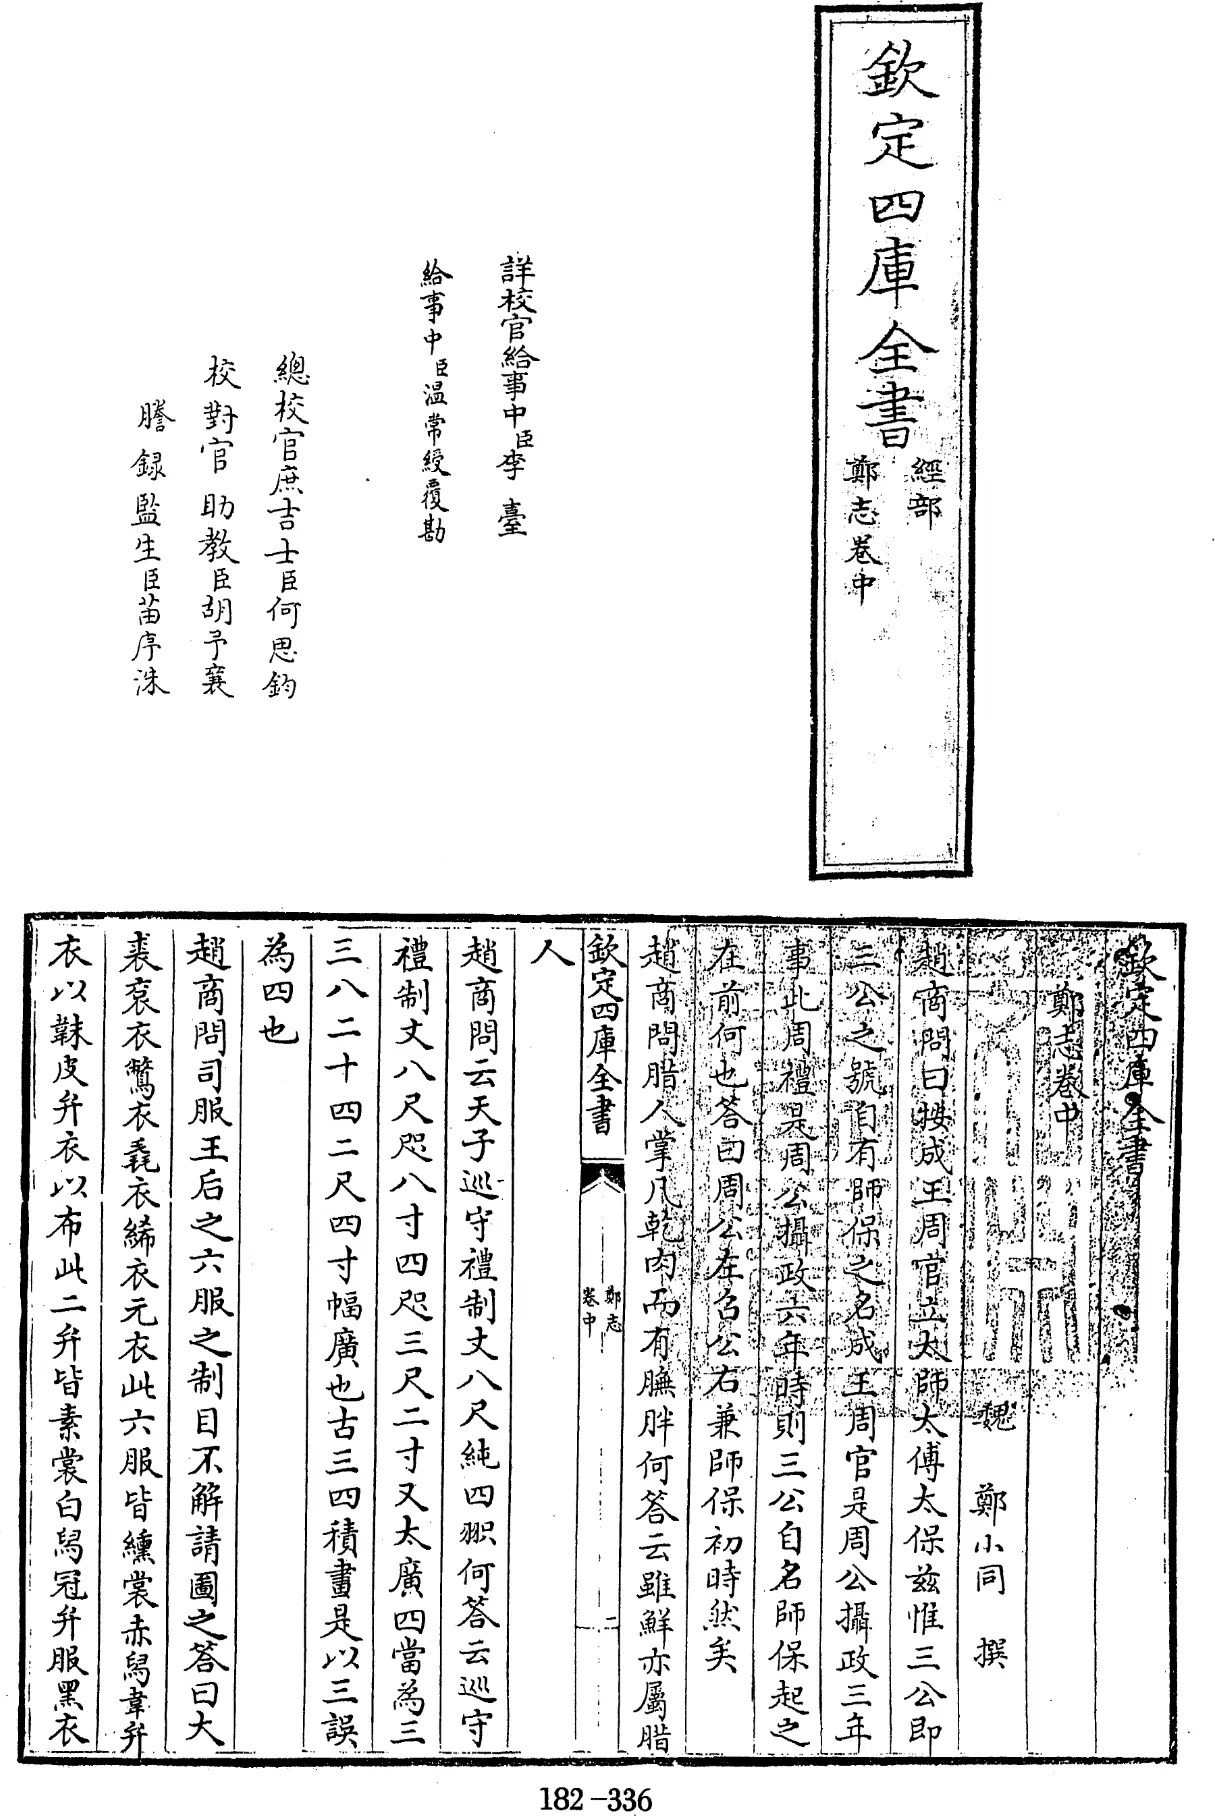 欽定四庫全書
經部
鄭志卷中
詳校官給事中臣李臺
給事中臣温常綬覆勘
總校官庶吉士臣何思鈞
校對官助教臣胡予襄
謄録監生臣苗序洙
欽定四庫全書
鄭志卷中
魏 鄭小同 撰
趙商問曰按成王周官立太師太傅太保兹惟三公即
三公之號自有師保之名成王周官是周公攝政三年
事此周禮是周公攝政六年時則三公自名師保起之
在前何也答曰周公左召公右兼師保初時然矣
趙商問腊人掌凡乾肉而有膴胖何答云雖鮮亦屬腊
欽定四庫全書
鄭志
卷中
二
人
趙商問云天子巡守禮制丈八尺純四𦐖何答云巡守
禮制丈八尺咫八寸四咫三尺二寸又太廣四當為三
三八二十四二尺四寸幅廣也古三四積畫是以三誤
為四也
趙商問司服王后之六服之制目不解請圖之答曰大
裘衮衣鷩衣毳衣絺衣元衣此六服皆纁裳赤舄韋弁
衣以韎皮弁衣以布此二弁皆素裳白舄冠弁服黑衣
182-336